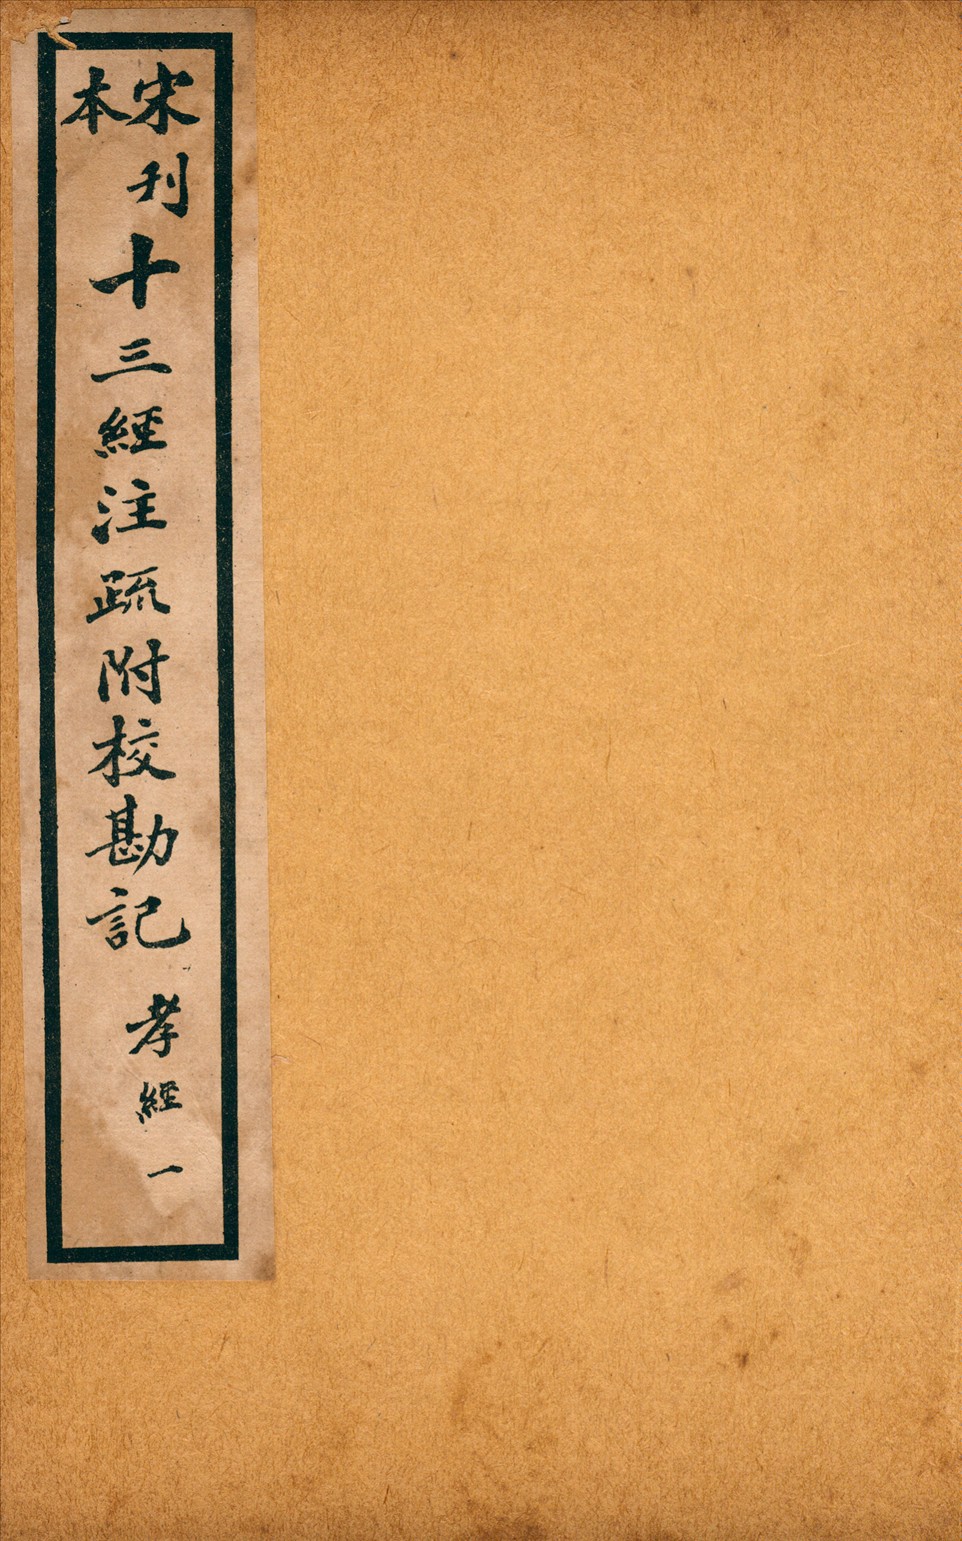 宋刊本
十三經注疏附校勘記
孝經一